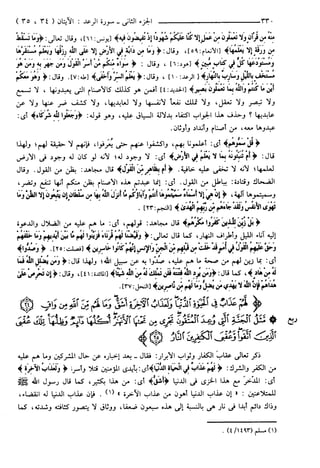 ٣٣٠ الجزء الثاني - سورة الرعد: الآيتان (٣٤ ، ٣٥)
تَعْمَلُونَ مِنْ عَمَلٍ إِلَّا كُنَّا عَلَيْكُمْ شُهُودًا إِذْ تُفِيضُونَ فِيهِ﴾ [يونس: ٦١]، وقال تعالى: ﴿وَمَا تَسْقُطُ
مِن وَرَقَةٍ إِلَّا يَعْلَمُهَا﴾ [الأنعام: ٥٩]، وقال: ﴿وَمَا مِن دَابَّةٍ فِي الْأَرْضِ إِلَّا عَلَى اللَّهِ رِزْقُهَا وَيَعْلَمُ مُسْتَقَرَّهَا
وَمُسْتَوْدَعَهَا كُلٌّ فِي كِتَابٍ مُّبِينٍ﴾ [هود: ٦]، وقال: ﴿سَوَاءٌ مِّنكُم مَّنْ أَسَرَّ الْقَوْلَ وَمَن جَهَرَ بِهِ وَمَنْ هُوَ
مُسْتَخْفٍ بِاللَّيْلِ وَسَارِبٌ بِالنَّهَارِ﴾ [الرعد: ١٠]، وقال: ﴿يَعْلَمُ السِّرَّ وَأَخْفَى﴾ [طه: ٧]، وقال: ﴿وَهُوَ مَعَكُمْ
أَيْنَ مَا كُنتُمْ وَاللَّهُ بِمَا تَعْمَلُونَ بَصِيرٌ﴾ [الحديد: ٤] أفمن هو كذلك كالأصنام التي يعبدونها، لا تسمع
ولا تبصر ولا تعقل، ولا تملك نفعاً لأنفسها ولا لعابديها، ولا كشف ضر عنها ولا عن
عابديها؟ وحذف هذا الجواب اكتفاء بدلالة السياق عليه، وهو قوله: ﴿وَجَعَلُوا لِلَّهِ شُرَكَاءَ﴾ أي:
عبدوها معه، من أصنام وأنداد وأوثان.
﴿قُلْ سَمُّوهُمْ﴾ أي: أعلمونا بهم، واكشفوا عنهم حتى يُعرفوا، فإنهم لا حقيقة لهم؛ ولهذا
قال: ﴿أَمْ تُنَبِّئُونَهُ بِمَا لَا يَعْلَمُ فِي الْأَرْضِ﴾ أي: لا وجود له؛ لأنه لو كان له وجود في الأرض
لعلمها؛ لأنه لا تخفى عليه خافية. ﴿أَم بِظَاهِرٍ مِّنَ الْقَوْلِ﴾ قال مجاهد: بظن من القول. وقال
الضحاك وقتادة: بباطل من القول. أي: إنما عبدتم هذه الأصنام بظن منكم أنها تنفع وتضر،
وسميتموها آلهة، ﴿إِنْ هِيَ إِلَّا أَسْمَاءٌ سَمَّيْتُمُوهَا أَنتُمْ وَآبَاؤُكُم مَّا أَنزَلَ اللَّهُ بِهَا مِن سُلْطَانٍ إِن يَتَّبِعُونَ إِلَّا الظَّنَّ وَمَا
تَهْوَى الْأَنفُسُ وَلَقَدْ جَاءَهُم مِّن رَّبِّهِمُ الْهُدَى﴾ [النجم: ٢٣].
﴿بَلْ زُيِّنَ لِلَّذِينَ كَفَرُوا مَكْرُهُمْ﴾ قال مجاهد: قولهم، أي: ما هم عليه من الضلال والدعوة
إليه آناء الليل وأطراف النهار، كما قال تعالى: ﴿وَقَيَّضْنَا لَهُمْ قُرَنَاءَ فَزَيَّنُوا لَهُم مَّا بَيْنَ أَيْدِيهِمْ وَمَا خَلْفَهُمْ
وَحَقَّ عَلَيْهِمُ الْقَوْلُ فِي أُمَمٍ قَدْ خَلَتْ مِن قَبْلِهِم مِّنَ الْجِنِّ وَالْإِنسِ إِنَّهُمْ كَانُوا خَاسِرِينَ﴾ [فصلت: ٢٥]. ﴿وَصُدُّوا﴾
أي: بما زين لهم من صحة ما هم عليه، صدوا به عن سبيل الله؛ ولهذا قال: ﴿وَمَن يُضْلِلِ اللَّهُ فَمَا
لَهُ مِنْ هَادٍ﴾، كما قال: ﴿وَمَن يُرِدِ اللَّهُ فِتْنَتَهُ فَلَن تَمْلِكَ لَهُ مِنَ اللَّهِ شَيْئًا﴾ [المائدة: ٤١]، وقال: ﴿إِن تَحْرِصْ عَلَى
هُدَاهُمْ فَإِنَّ اللَّهَ لَا يَهْدِي مَن يُضِلُّ وَمَا لَهُم مِّن نَّاصِرِينَ﴾ [النحل: ٣٧].
﴿لَهُمْ عَذَابٌ فِي الْحَيَاةِ الدُّنْيَا وَلَعَذَابُ الْآخِرَةِ أَشَقُّ وَمَا لَهُم مِّنَ اللَّهِ مِن وَاقٍ
ربع
ذكر تعالى عقاب الكفار وثواب الأبرار: فقال - بعد إخباره عن حال المشركين وما هم عليه
من الكفر والشرك: ﴿لَهُمْ عَذَابٌ فِي الْحَيَاةِ الدُّنْيَا﴾ أي: بأيدي المؤمنين قتلاً وأسراً، ﴿وَلَعَذَابُ الْآخِرَةِ﴾
أي: المدخر مع هذا الخزي في الدنيا ﴿أَشَقُّ﴾ أي: من هذا بكثير، كما قال رسول الله ﷺ
للمتلاعنين: «إن عذاب الدنيا أهون من عذاب الآخرة»(١). فإن عذاب الدنيا له انقضاء،
وذاك دائم أبداً في نار هي بالنسبة إلى هذه سبعون ضعفاً، ووثاق لا يتصور كثافته وشدته، كما
(١) مسلم (١٤٩٣/٤).